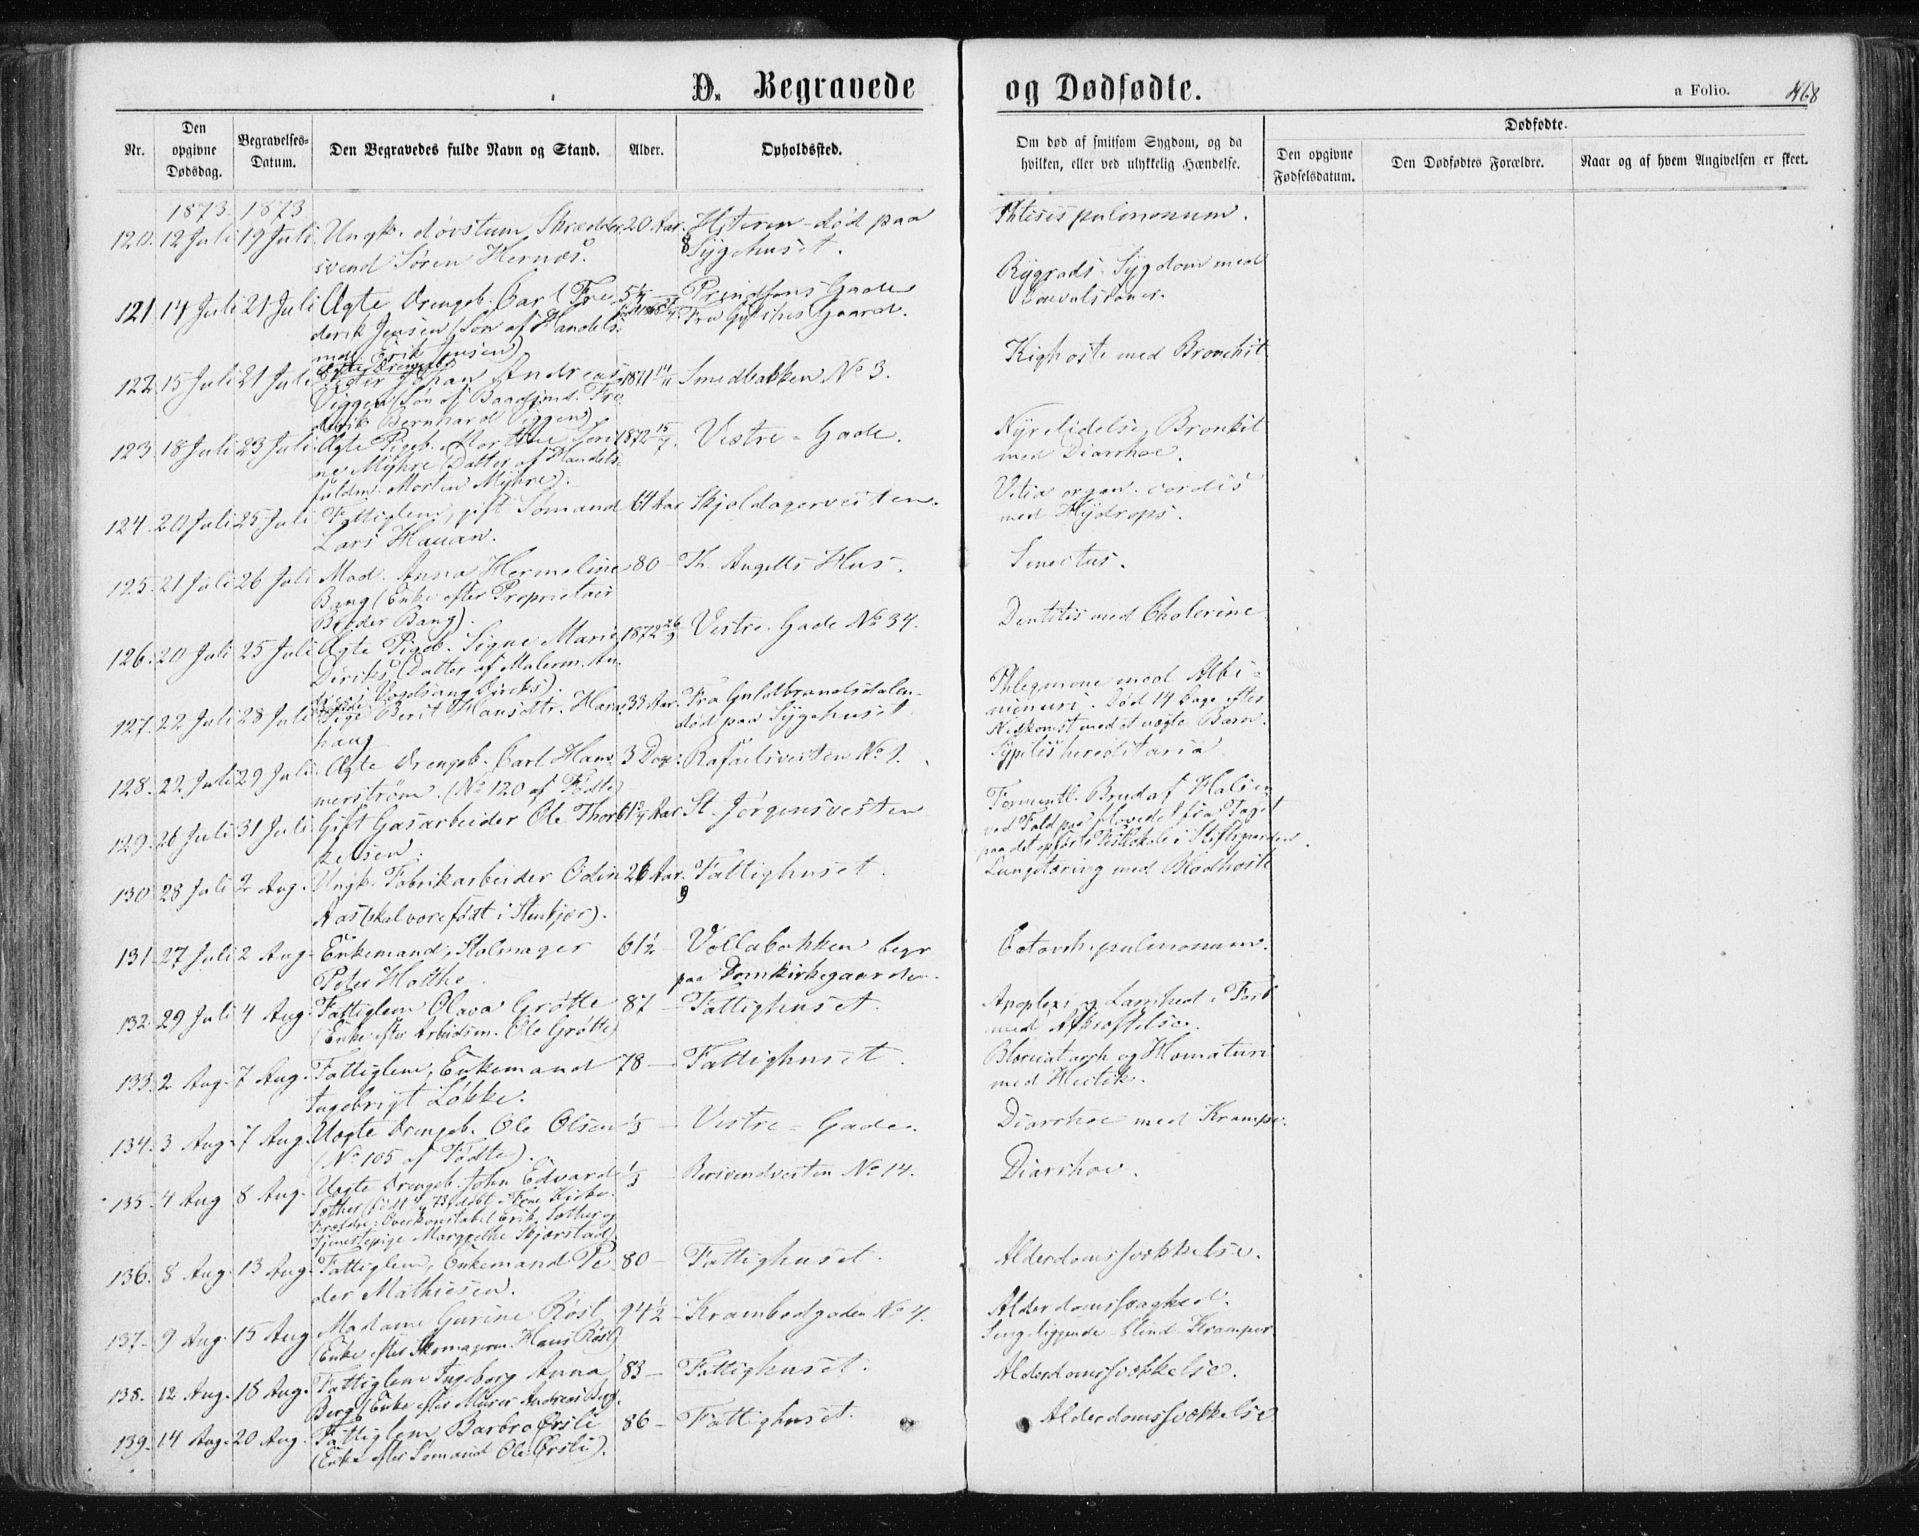 D. Begravede og Dødfødte.
a Folio. 468
Nr.
Den opgivne Dødsdag.
Begravelses-Datum.
Den Begravedes fulde Navn og Stand.
Alder.
Opholdssted.
Om død af smitsom Sygdom, og da hvilken, eller ved ulykkelig Hændelse.
Dødfødte.
Den opgivne Fødselsdatum.
Den Dødfødtes Forældre.
Naar og af hvem Angivelsen er skeet.
1873. 1873
120. 12 Juli 19 Juli Ungk. døvstum Skrædder 20 Aar. Hitteren - død paa Phtisis pulmonum.
svend Søren Hernæs. Sygehuset.
121. 14 Juli 21 Juli Ægte Drengeb. Carl Fre Prindsens Gade Rygrads-Sygdom med
derik Jensen (Søn af Handels Fra Gaard. Convulsioner.
md. Erik Jensen)
Ægte Drengeb.
122. 15 Juli 21 Juli Peter Johan Andreas 1871 Smedbakken No 3. Kighoste med Bronchit
Viggen (Søn af Baadsmd. Fre
derik Bernhard Viggen)
123. 18 Juli 23 Juli Ægte Pigeb. Marthe Seri 1872 15/7. Vestre-Gade. Nyrelidelse, Bronkit
ne Myhre Datter af Handels med Diarrhoe.
fuldm. Morten Myhre).
124. 20 Juli 25 Juli Fattiglem, gift Sømand Aar Skjoldagerveiten. Vitia organ. cordis
Lars Hauan. med Hydrops.
125. 21 Juli 26 Juli Mad. Anna Hermeline 80 - Th. Angells Hus. Senectus.
Bang (Enke efter Proprietair
Bang).
126. 20 Juli 25 Juli Ægte Pigeb. Signe Marie 1872 26/9 Vestre Gade No 34. Dentitis med Cholerine
Diriks (Datter af Malerm. An
dreas Vogelsang Diriks).
127. 22 Juli 28 Juli Pige Berit Hansdtr. 33 Aar. Fra Guldbrandsdalen - Phlegmone med Albu-
haug død paa Sygehuset minuri. Død 14 Dage efter
Nedkomst med et uægte Barn.
128. 22 Juli 29 Juli. Ægte Drengeb. Carl Ham 3 Dag: Rafaelsveiten No 1. Syphilis hereditaria
merstrøm. (No 120 af Fødte)
129. 26 Juli 31 Juli Gift Gasarbeider Ole Thor Aar St. Jørgensveiten Formentl. Brud af Halsen
kelsen. ved Fald paa Hovedet fra Taget
paa det opførte Festlokale i Stiftsgaarden.
130. 28 Juli 2 Aug. Ungk. Fabrikarbeider Odin 26 Aar. Fattighuset. Lungetæring med Blodhoste
Aas (skal være født i Stenkjær).
131. 27 Juli 2 Aug. Enkemand, Stolmager 61½ - Vollabakken begr Catarrh. pulmonum.
Peter Holthe paa Domkirkegaarden.
132. 29 Juli 4 Aug. Fattiglem Olava Grøtte 87 - Fattighuset. Apoplexi og Lamhed i Forb
(Enke efter Arbeidsm. Ole Grøtte) med Afkræftelse.
133. 2 Aug. 7 Aug. Fattiglem, Enkemand 78 - Fattighuset. Blærecatarrh og Hæmaturi
Ingebrigt Løkke. med Hectik.
134. 3 Aug. 7 Aug. Uægte Drengeb. Ole Olsen - Vestre-Gade. Diarrhoe med Krampe.
(No 105 af Fødte).
135. 4 Aug 8 Aug. Uægte Drengeb. John Edvard Bersvendveiten No 14. Diarrhoe.
Sæther (født 73 døbt i Frue Kirke.
Forældre: Overkonstabel Erik Sæther og
Tjenestepige Margrethe Skjærstad)
136. 8 Aug. 13 Aug. Fattiglem, Enkemand Pe 80 - Fattighuset. Alderdomssvækkelse.
der Mathiesen.
137. 9 Aug. 15 Aug. Madame Gurine Røst 94½ - Krambodgaden No 4. Alderdomssvaghed.
(Enke efter Skomagerm. Hans Røst) Sengeliggende - blind - Kramper.
138. 12 Aug. 18 Aug. Fattiglem Ingeborg Anna 83 - Fattighuset. Alderdomssvækkelse.
Berg (Enke efter Murer Andreas Berg.
139. 14 Aug. 20 Aug. Fattiglem Barbro Ørsli 86 - Fattighuset. Alderdomssvækkelse
(Enke efter Sømand Ole Ørsli).